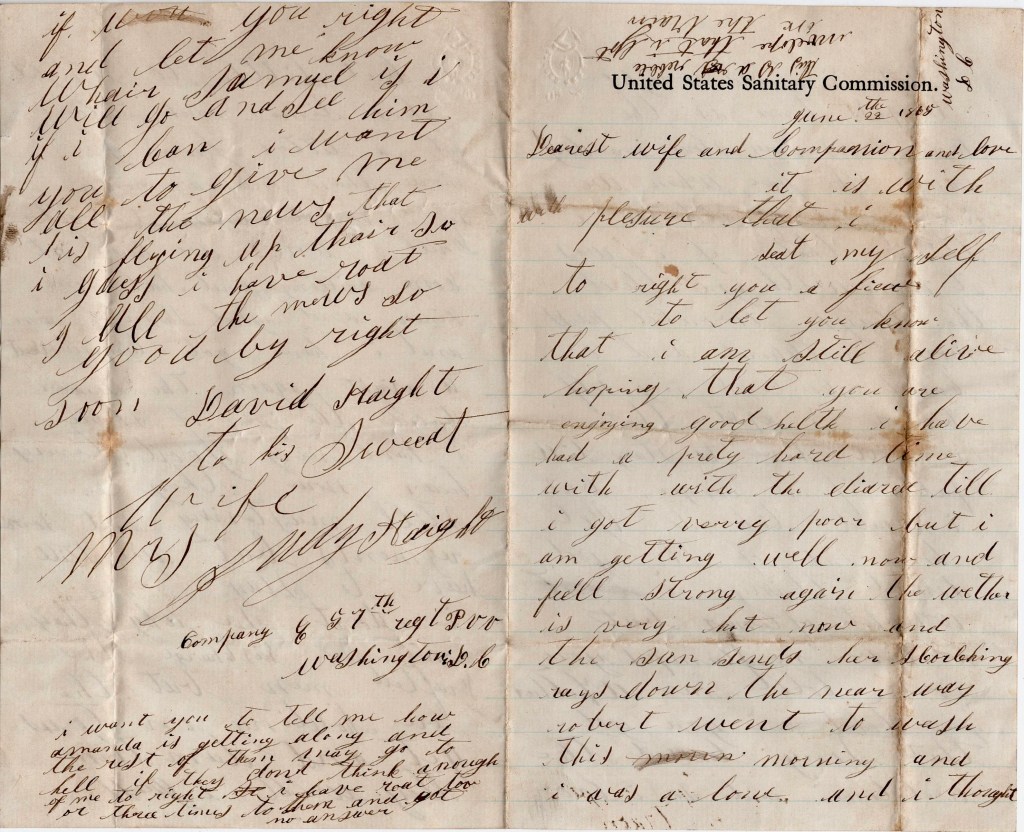 if won you right
and let me know
Whair Samuel is i
will go and see him
if i can i want
you to give me
all the news that
is flying up thair so
i guess i have roat
all the news so
good by right
soon David Haight
to his Sweeat
Wife
Mrs Judy Haight
Company E 57th regt P v v
Washington D. C
i want you to tell me how
amanda is getting along and
the rest of them may go to
hell if they dont think anough
of me to right i have roat too
or three times to them and got
no answer
This is a rebble
invelope that i got
in the Train
washington
D C
United States Sanitary Commission.
June the 22 1865
Dearest wife and Companion and love
it is with
plesure that i
seat my self
to right you a fiew
to let you know
that i am still alive
hoping that you are
enjoying good helth i have
had a prety hard time
with with the diared till
i got verry poor but i
am getting well now and
fell strong again the wether
is very hot now and
the sun sends her scorching
rays down the near way
robert went to wash
this mornin morning and
i was a lone and i thought